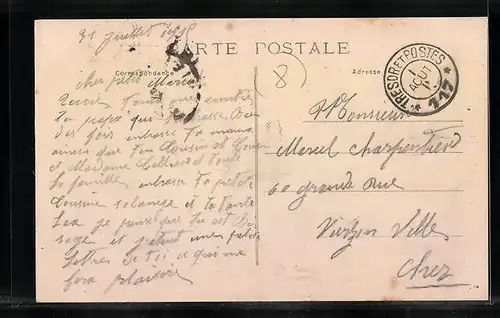 31 juillet 1915
CARTE POSTALE
Correspondance
Adresse
8
TRESOR ET POSTES
AOUT
* 117 *
cher petit Marcel
ton papa qui
des fois embrasse ta maman
ainsi que ton Cousin et Cousine
et Madame et toute
la famille embrasse ta petite
Cousine solange et ta tante
Lea je pense que tu est bien
sage et une petite
lettres de toi ce qui me
fera plaisire
Monsieur
Marcel Charpentier
60 grande rue
Vierzon Ville
Cher